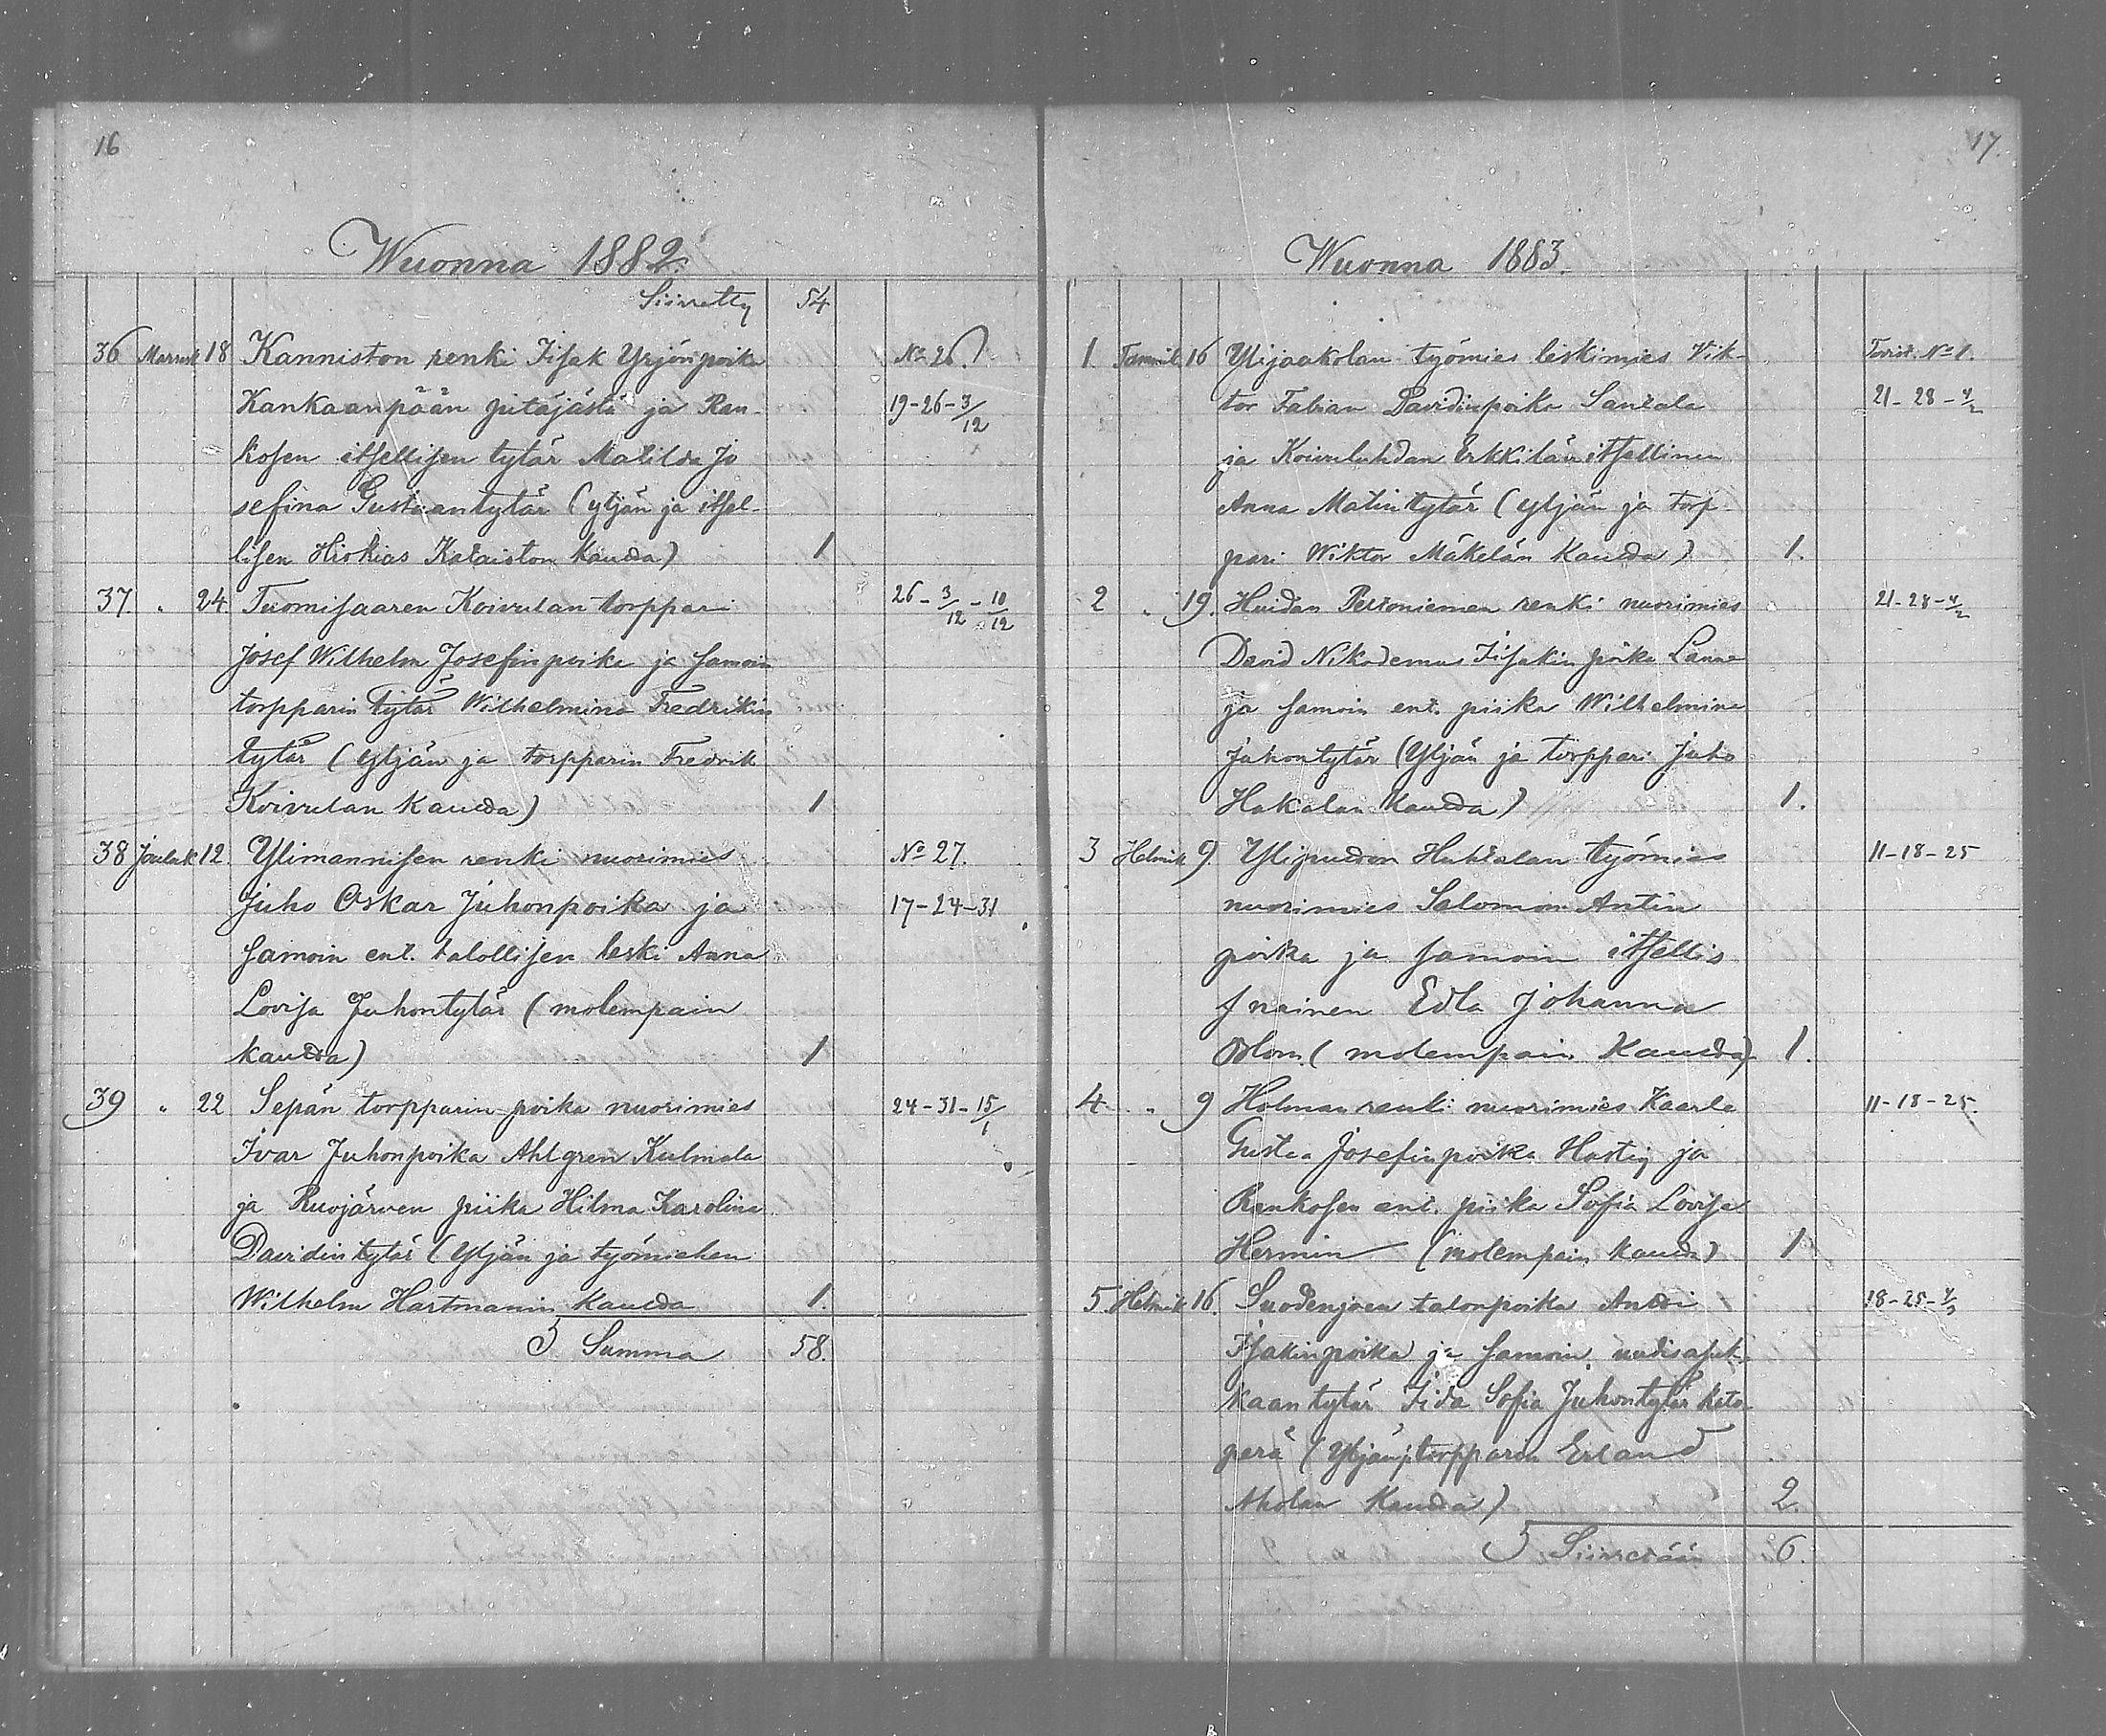 16
Wuonna 1882.
Siirretty 54
36 Marrask 18 Kanniston renki Iisak Yrjönpoika No 26.
Kankaanpään pitäjästä ja Ran- 19-26-3/12
kosen itsellisen tytär Matilda Jo
sefina Gustaantytär (ytjän ja itsel-
lisen Hiskias Kataiston kautta) 1
37. " 24 Tuomisaaren Koivulan torppari 26-3/12-10/12
Josef Wilhelm Josefinpoika ja samoin
torpparin tytär Wilhelmina Fredrikin
tytär (ytjän ja torpparin Fredrik
Koivulan kautta) 1
38 Jouluk 12. Ylimannisen renki nuorimies No 27.
Juho Oskar Juhonpoika ja 17-24-31
samoin ent. talollisen leski Anna
Lovisa Juhontytär (molempain
kautta) 1
39 " 22 Sepän torpparin poika nuorimies 24-31-15/1
Ivar Juhonpoika Ahlgren Kulmala
ja Ruojärven piika Hilma Karolina
Davidintytär (Ytjän ja työmiehen
Wilhelm Hartmanin kautta 1.
Summa 58.
17.
Wuonna 1883.
1. Tammik 16 Ylijaakolan työmies leskimies Vik- No 1.
tor Fabian Davidinpoika Santala 21-28-4/2
ja Koivulahdan Erkkilän itsellinen
Anna Matintytär (ytjän ja torp-
pari Wiktor Mäkelän kautta) 1.
2 " 19. Huidan Peltoniemen renki nuorimies 21-28-4/2
David Nikodemus Iisakin poika Lanne
ja samoin ent. piika Wilhelmina
Juhontytär (Ytjän ja torppari Juho
Hakalan kautta) 1.
3 Helmik 9. Ylipuddon Huhtalan työmies 11-18-25
nuorimies Salomon Antin
poika ja samoin itsellis
nainen Edla Johanna
Blom (molempain kautta) 1.
4 " 9 Holman renki nuorimies Kaarle 11-18-25.
Gustaa Josefinpoika Hastig ja
Rankosen ent. piika Sofia Lovisa
Hermin (molempain kautta) 1
5. Helmik 16. Suodenjoen talonpoika Antti 18-25-4/3
Isakinpoika ja samoin uudisasuk-
kaan tytär Iida Sofia Juhontytär Keto
perä (Ytjän j. torpparin Erland
Aholan kautta) 2.
Siirretään 6.